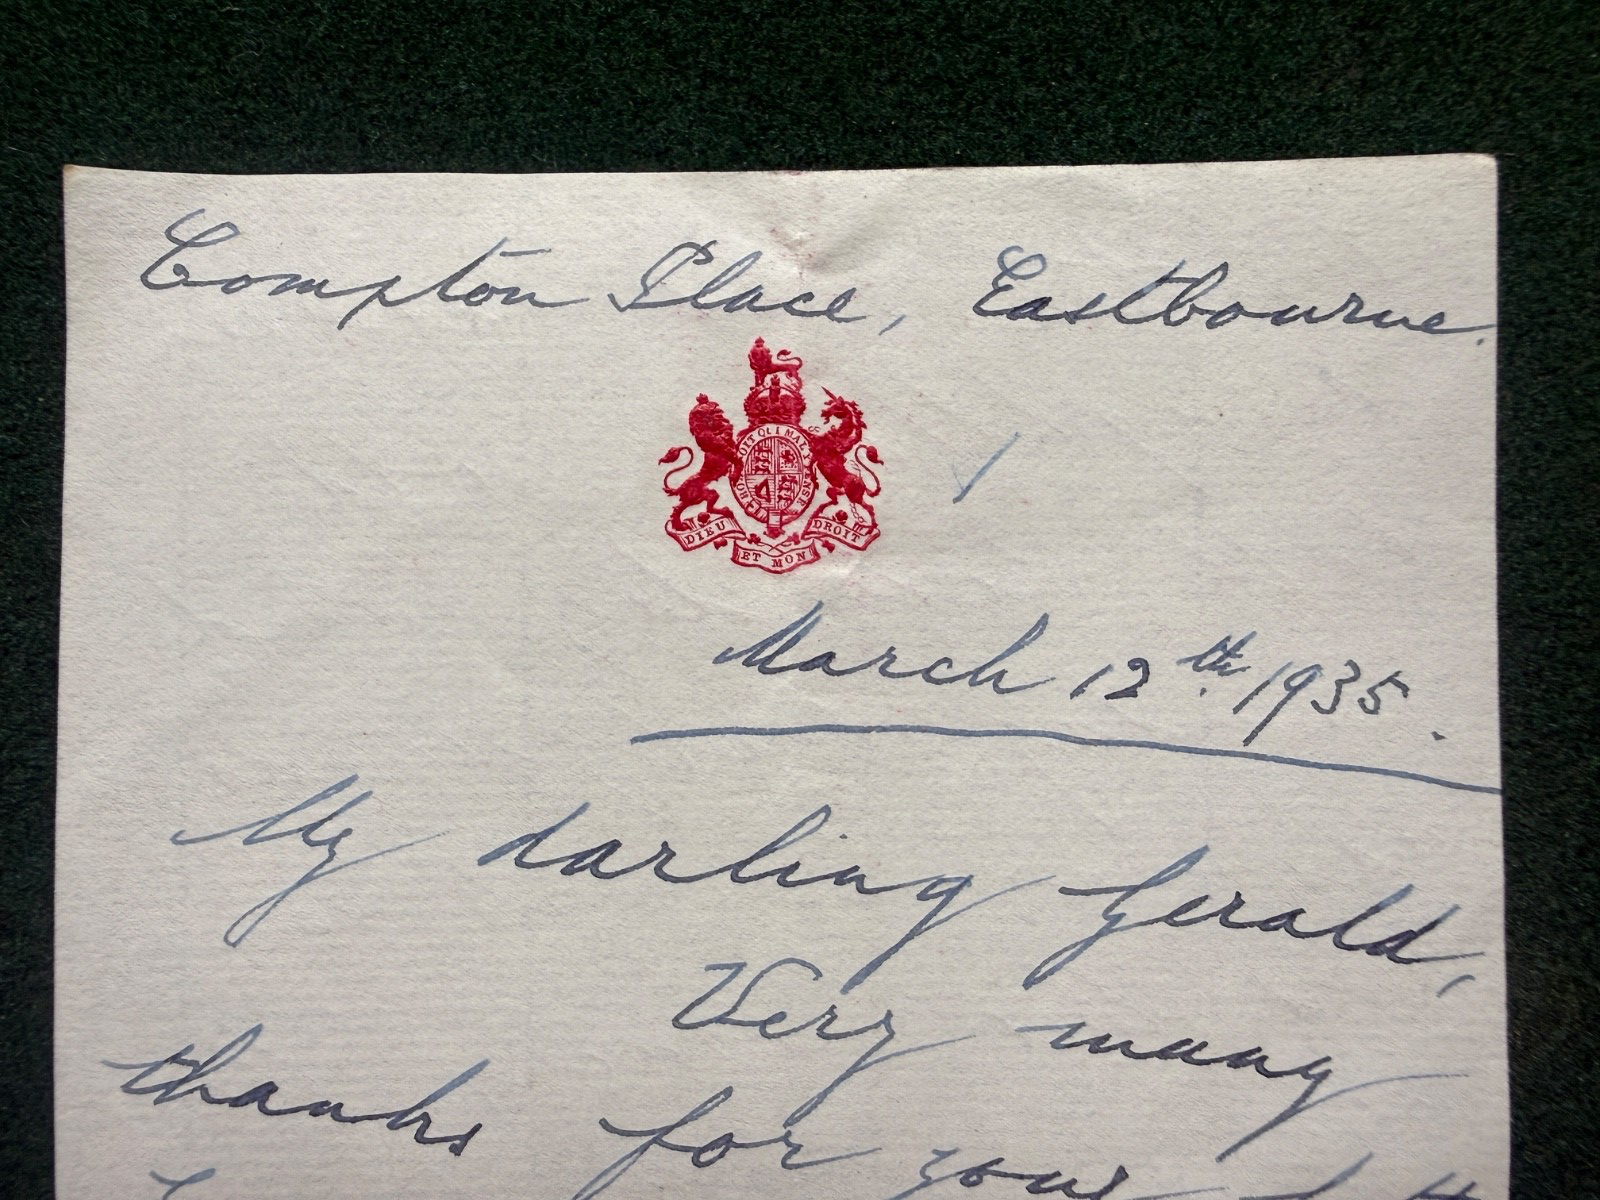 Compton Place, Eastbourne.
HONI SOIT QUI MAL Y PENSE
DIEU ET MON DROIT
March 12th. 1935.
My darling Gerald,
Very many
thanks for your